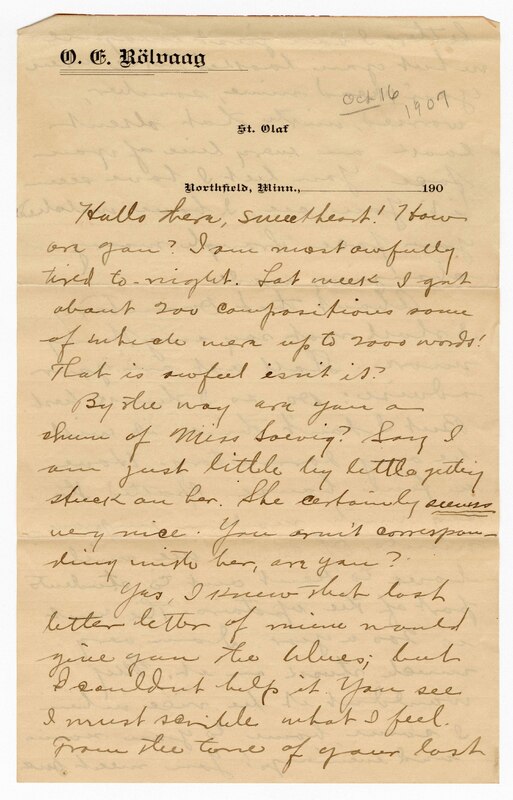 O. E. Rölvaag
Oct 16 1907
St. Olaf
Northfield, Minn., 190
Hallo there, sweetheart! How
are you? I am most awfully
tired to-night. Last week I got
about 200 compositions some
of which were up to 2000 words!
That is awful isn't it?
By the way are you a
chum of Miss Soevig? Say I
am just little by little getting
stuck on her. She certainly seems
very nice. You arn't correspon-
ding with her, are you?
Yes, I knew that last
letter letter of mine would
give you the blues; but
I couldn't help it. You see
I must scrible what I feel.
From the tone of your last